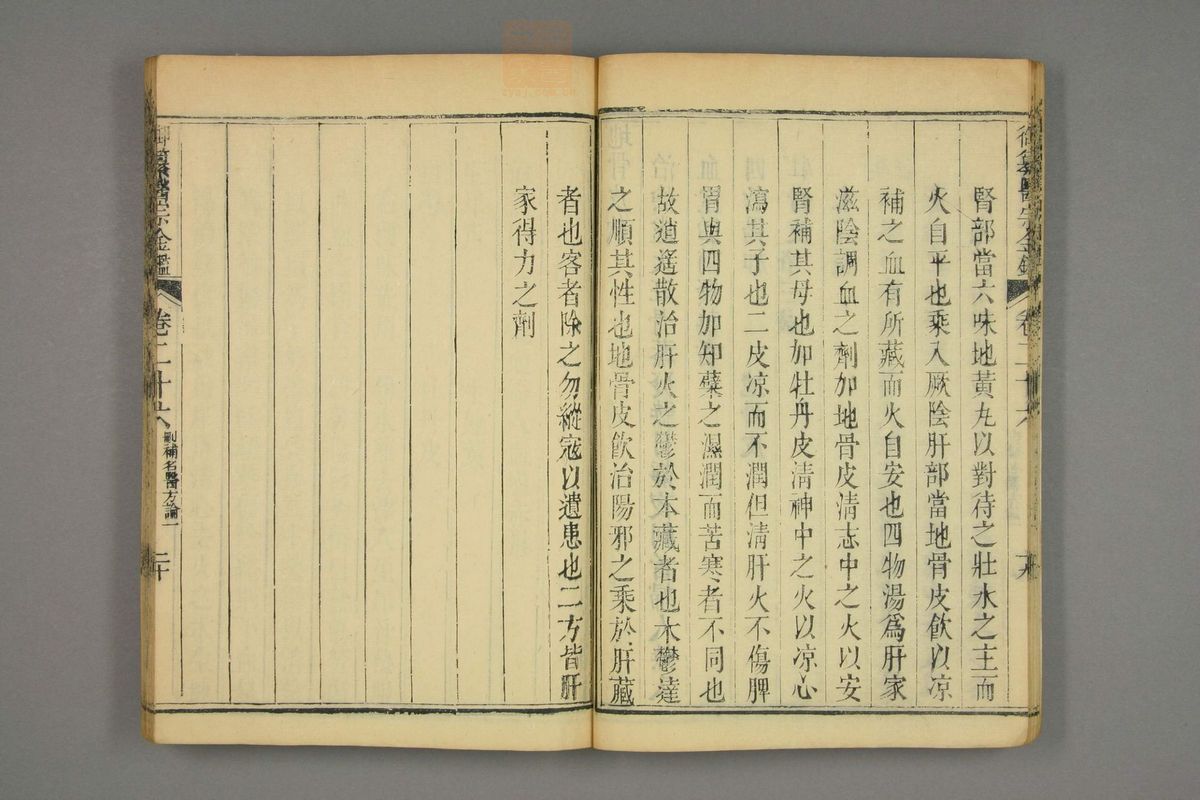 腎部當六味地黃丸以對待之壯水之主而
火自平也乘入厥陰肝部當地骨皮飲以凉
補之血有所藏而火自安也四物湯爲肝家
滋陰調血之劑加地骨皮清志中之火以安
腎補其母也加牡丹皮清神中之火以凉心
瀉其子也二皮凉而不潤但清肝火不傷脾
胃與四物加知蘗之濕潤而苦寒者不同也
故逍遙散治肝火之鬱於本藏者也木鬱達
之順其性也地骨皮飲治陽邪之乘於肝藏
者也客者除之勿縱寇以遺患也二方皆肝
家得力之劑
御纂醫宗金鑑
卷二十六
刪補名醫方論一
二十